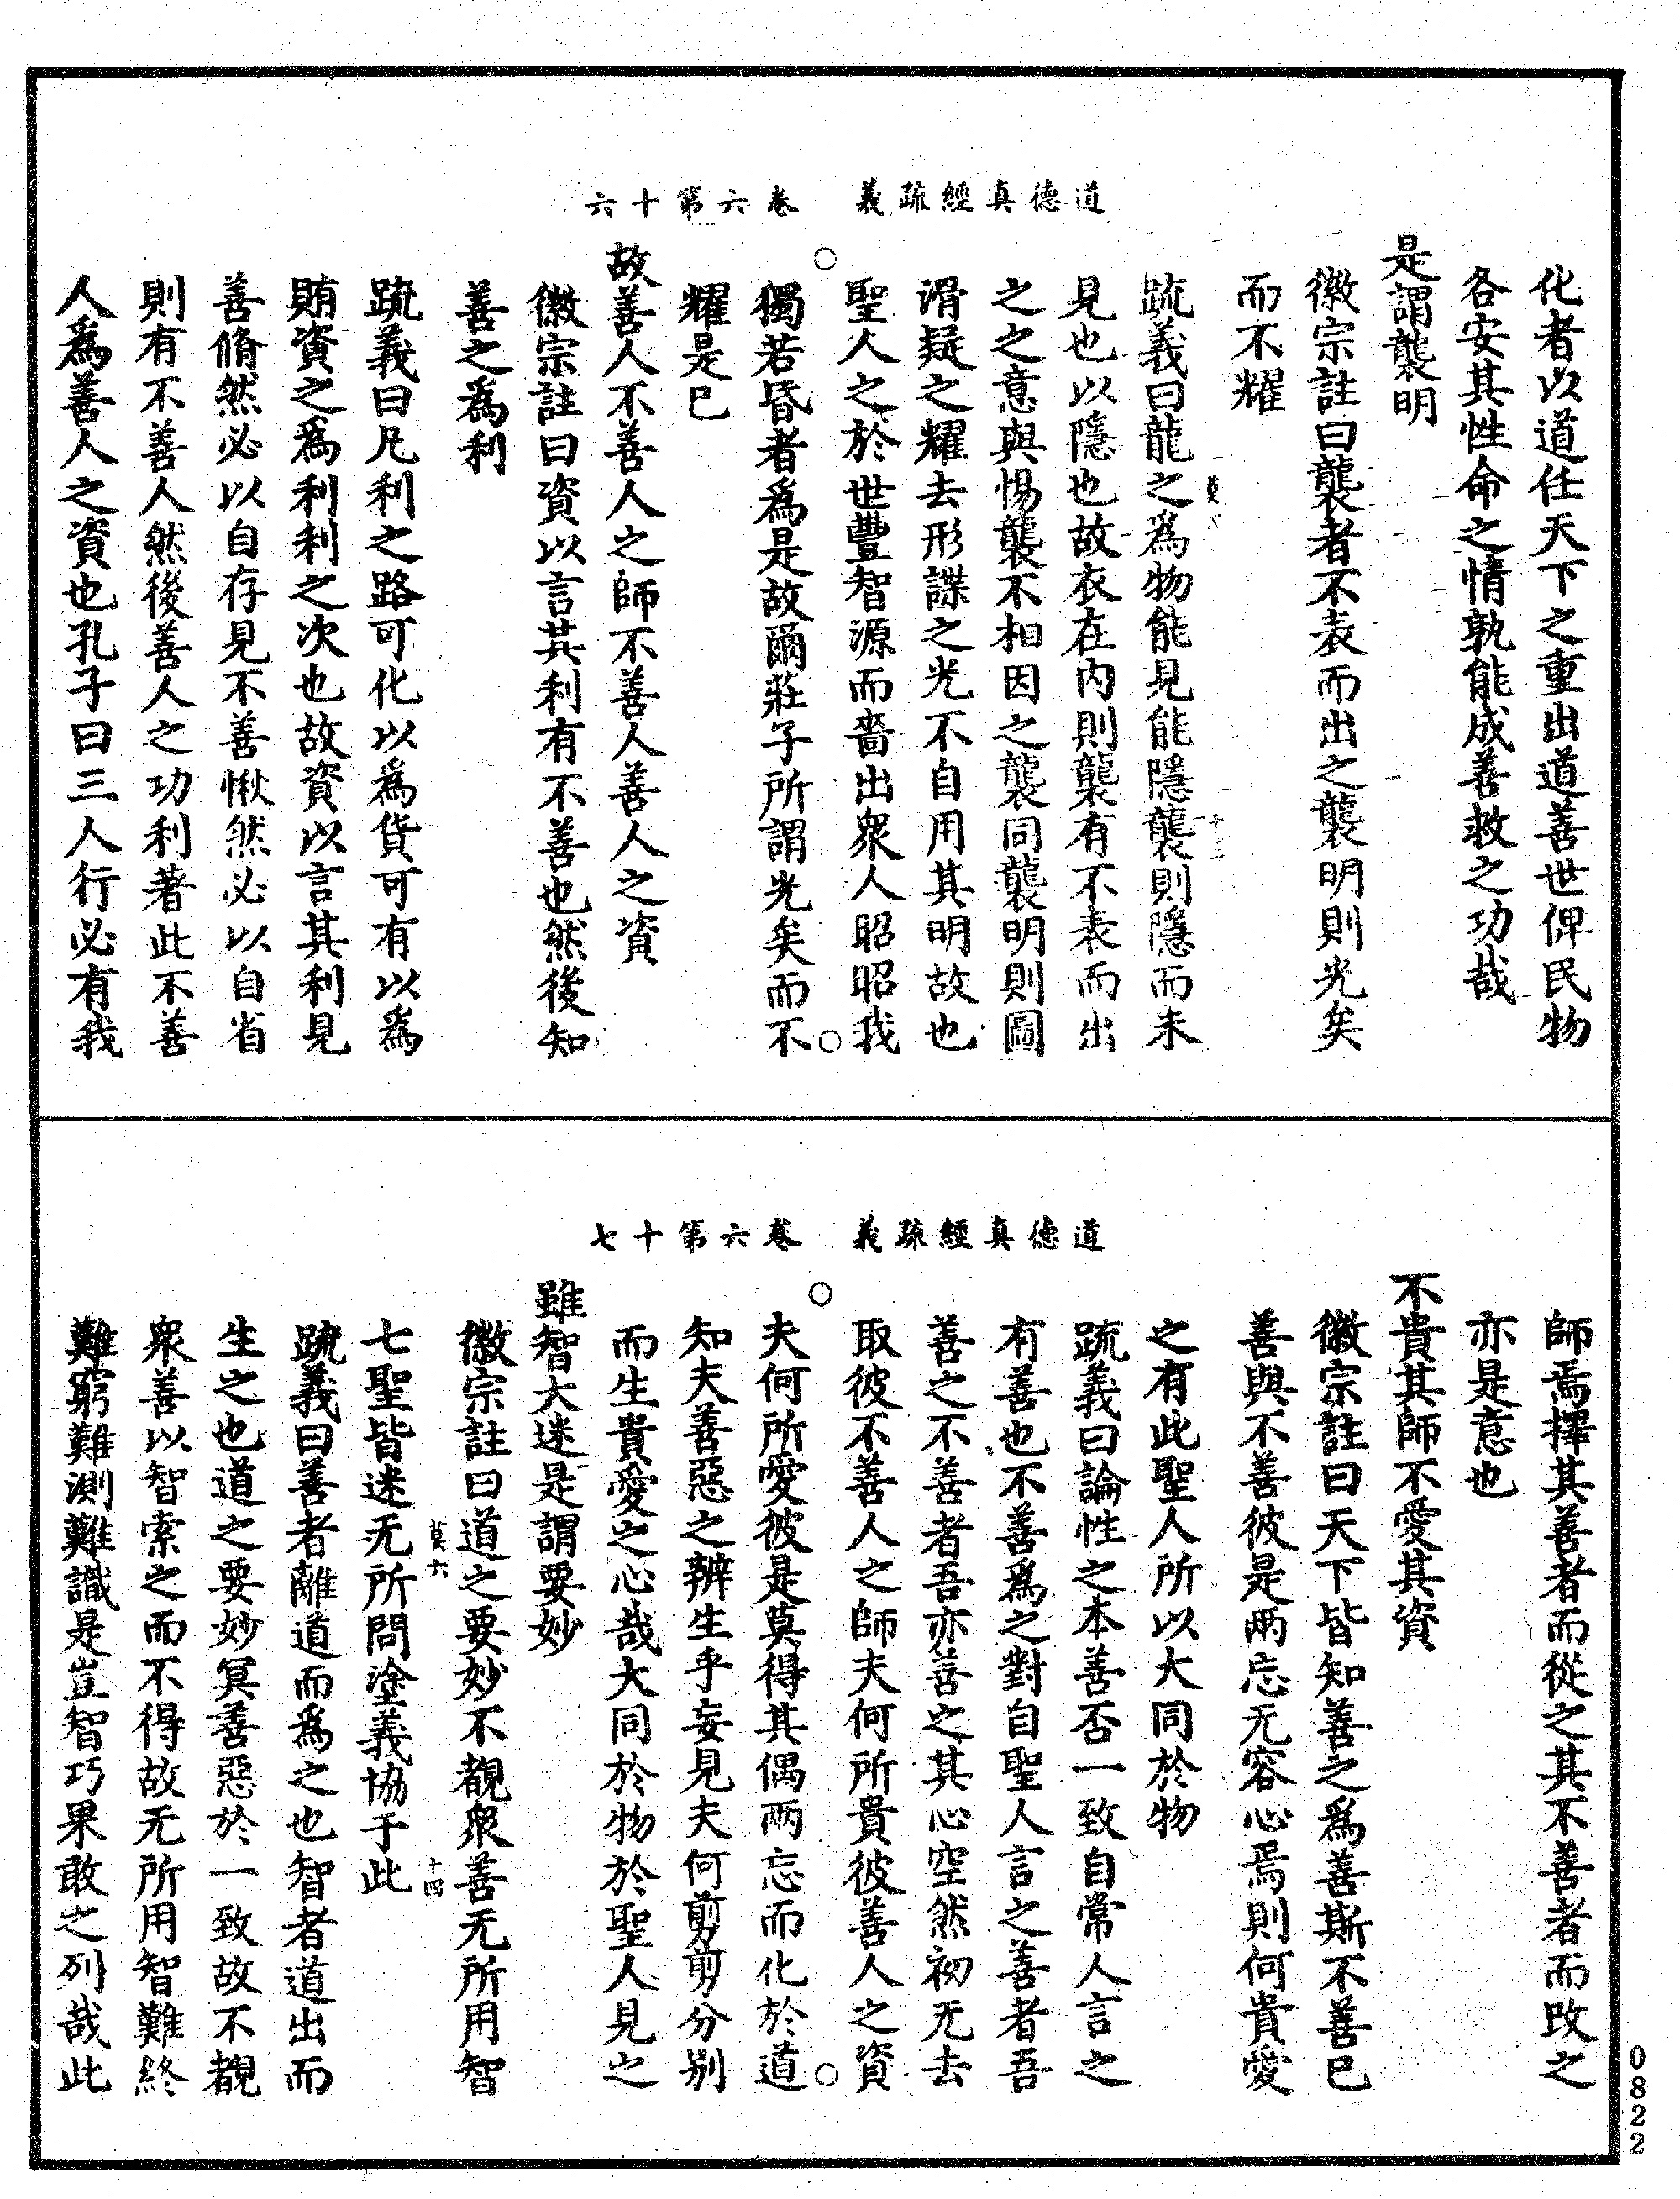 道德真經疏義　卷六第十六
化者以道任天下之重出道善世俾民物
各安其性命之情孰能成善救之功哉
是謂襲明
徽宗註曰襲者不表而出之襲明則光矣
而不耀
疏義曰龍之爲物能見能隱襲則隱而未
見也以隱也故衣在内則襲有不表而出
之之意與惕襲不相因之襲同襲明則圖
滑疑之耀去形諜之光不自用其明故也
聖人之於世豐智源而嗇出衆人昭昭我
獨若昏者爲是故爾莊子所謂光矣而不
耀是已
故善人不善人之師不善人善人之資
徽宗註曰資以言其利有不善也然後知
善之爲利
疏義曰凡利之路可化以爲貨可有以爲
賄資之爲利利之次也故資以言其利見
善脩然必以自存見不善愀然必以自省
則有不善人然後善人之功利著此不善
人爲善人之資也孔子曰三人行必有我
道德真經疏義　卷六第十七
師焉擇其善者而從之其不善者而改之
亦是意也
不貴其師不愛其資
徽宗註曰天下皆知善之爲善斯不善已
善與不善彼是两忘无容心焉則何貴愛
之有此聖人所以大同於物
疏義曰論性之本善否一致自常人言之
有善也不善爲之對自聖人言之善者吾
善之不善者吾亦善之其心空然初无去
取彼不善人之師夫何所貴彼善人之資
夫何所愛彼是莫得其偶两忘而化於道
知夫善惡之辨生乎妄見夫何剪剪分别
而生貴愛之心哉大同於物於聖人見之
雖智大迷是謂要妙
徽宗註曰道之要妙不覩衆善无所用智
莫六
十四
七聖皆迷无所問塗義協于此
疏義曰善者離道而爲之也智者道出而
生之也道之要妙冥善惡於一致故不覩
衆善以智索之而不得故无所用智難終
難窮難測難識是豈智巧果敢之列哉此
0822